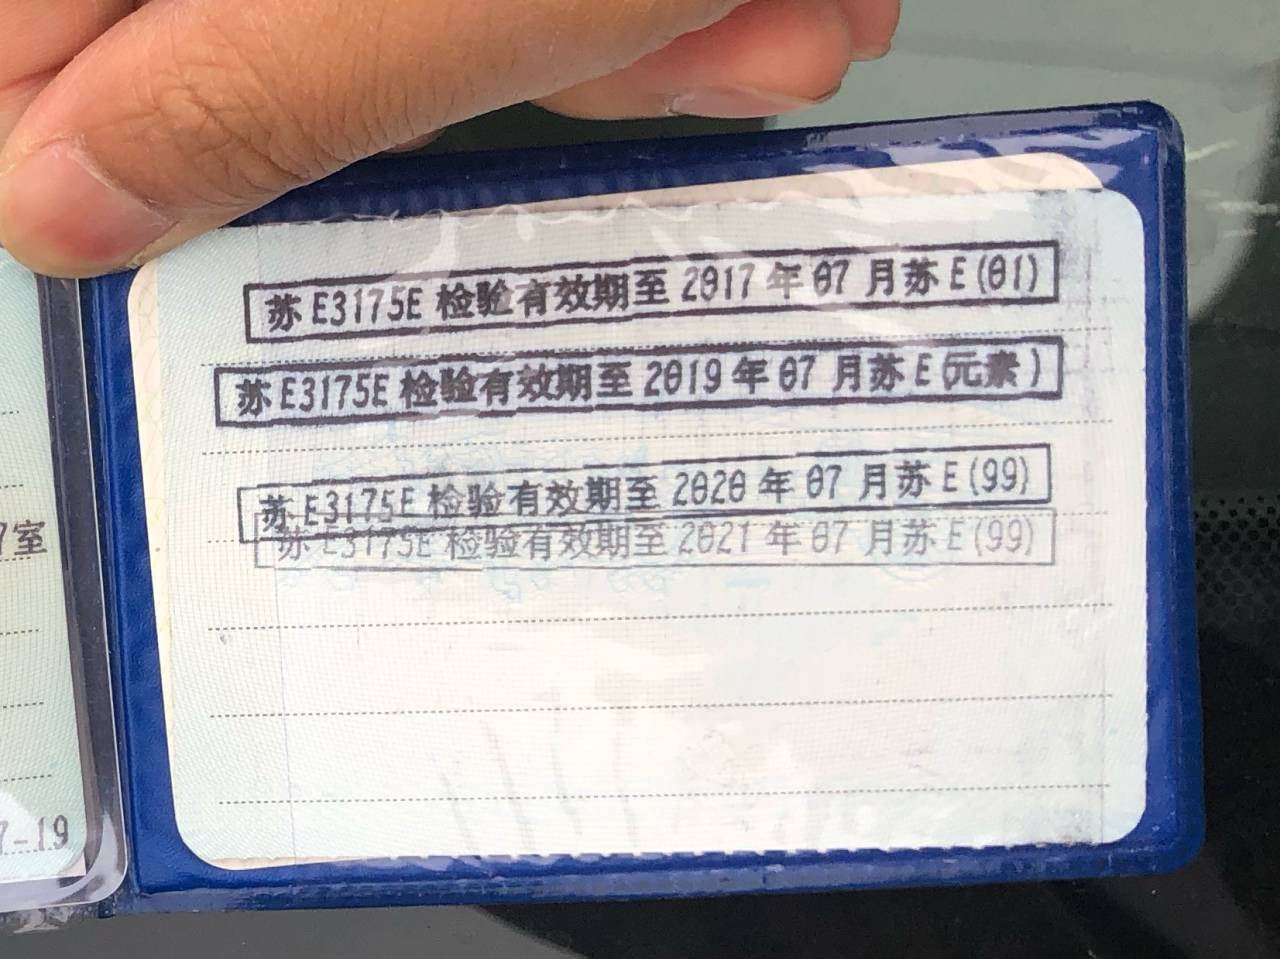 苏 E3175E 检验有效期至 2017 年 07 月苏 E(01)
苏 E3175E 检验有效期至 2019 年 07 月苏 E(元素)
苏 E3175E 检验有效期至 2020 年 07 月苏 E(99)
苏 E3175E 检验有效期至 2021 年 07 月苏 E(99)
7室
7-19